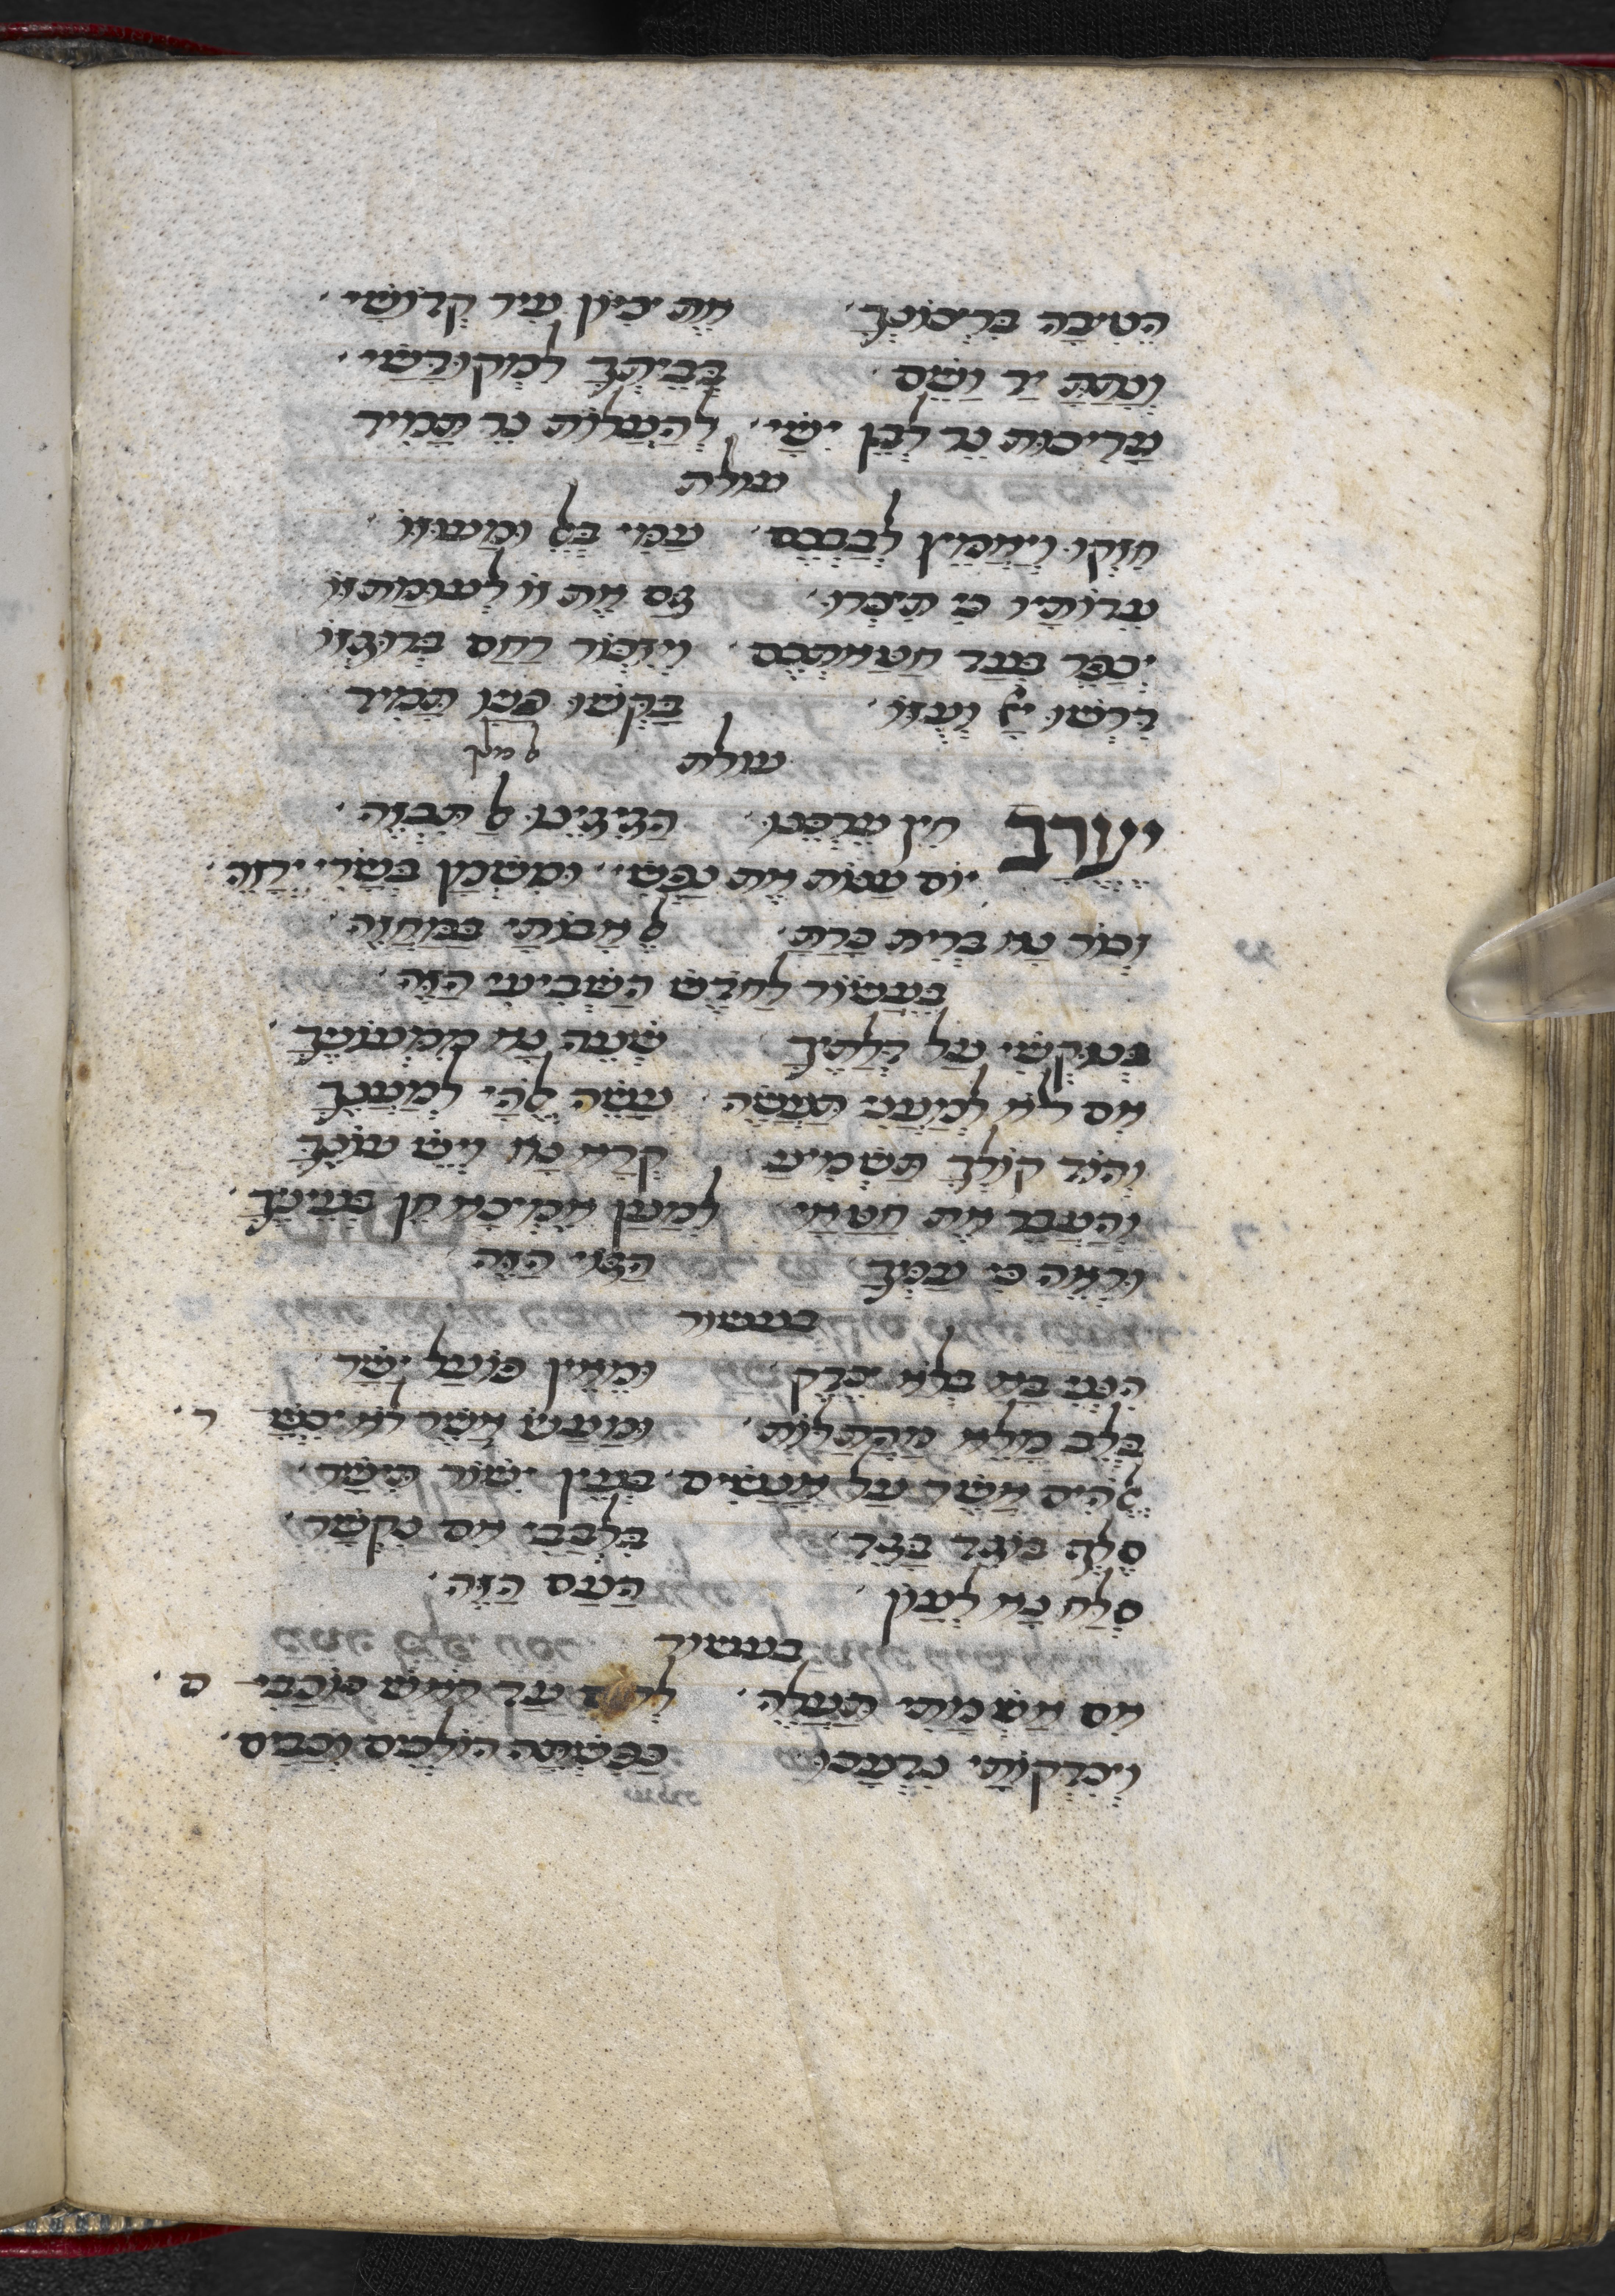 הֵטִיבָה בִּרְצוֹנְךָ אֶת צִיּוֹן עִיר קָדְשִׁי
וְנָתַתָּ יָד וָשֵׁם בְּבֵיתְךָ לִמְקוּדָּשַׁי
עֲרִיכוּת נֵר לְבֶן יִשַׁי לְהַעֲלוֹת נֵר תָּמִיד
עולת
חִזְקוּ וְיַאֲמֵץ לְבַבְכֶם עַמִּי בְּאֵל וּמָעוּזּוֹ
עֵדוֹתָיו כִּי תִצְּרוּ גַּם אֶת זוֹ לְעוּמַּת זוֹ
יְכַפֵּר בְּעַד חַטֹּאתְכֶם וְיִזְכּוֹר רַחֵם בְּרוּגְזוֹ
דִּרְשׁוּ יְיָ וְעֻזּוֹ בַּקְּשׁוּ פָנָיו תָּמִיד
עולת
יֶעֱרַב חִין עֶרְכֵּנוּ
יוֹם עַנּוֹת אֶת נַפְשִׁי וּמִשְׁמַן בְּשָׂרִי יֵרָזֶה
זְכוֹר נָא בְּרִית כָּרַתָּ לַאֲבוֹתַי בַּמַּחֲזֶה
בֶּעָשׂוֹר לַחֹדֶשׁ הַשְּׁבִיעִי הַזֶּה
בְּנוֹקְשִׁי עַל דְּלָתֶיךָ שְׁעֵה נָא מִמְּעוֹנֶךָ
אִם לֹא לְמַעֲנִי תַּעֲשֶׂה עֲשֵׂה אֱלֹהַי לְמַעַנְךָ
וְהוֹד קוֹלְךָ תַּשְׁמִיעַ קְרָא נָא וְיֵשׁ עוֹנֶךָּ
וְהַעֲבֵר אֶת חַטָּאַי לְמַעַן אֶמְצָא חֵן בְּעֵינֶיךָ
וּרְאֵה כִּי עַמְּךָ הַגּוֹי הַזֶּה
בעשור
הִנְנִי בָא בְּלֹא צֶדֶק וּמֵאֵין פּוֹעַל יָשָׁר
בְּלֵב מָלֵא מַהֲתַלּוֹת וּמַעַשׂ אֲשֶׁר לֹא יִכְשָׁר
אֱלֹהִים אֲשֶׁר עַל אֲנָשִׁים בְּעֵין יָשׁוּר תָּשׁוּר
סְלֹחַ בּוֹגֵד בָּגַד בִּלְבָבִי אִם נִקְשָׁר
סְלַח נָא לַעֲוֹן הָעָם הַזֶּה
בעשור
אִם אַשְׁמָתִי תַּעֲלֶה עַד רֹאשׁ כּוֹכָבִים
וְצִדְקוֹתַי כִּפִשְׁתָּה הוֹלְכִים וְכָבִים